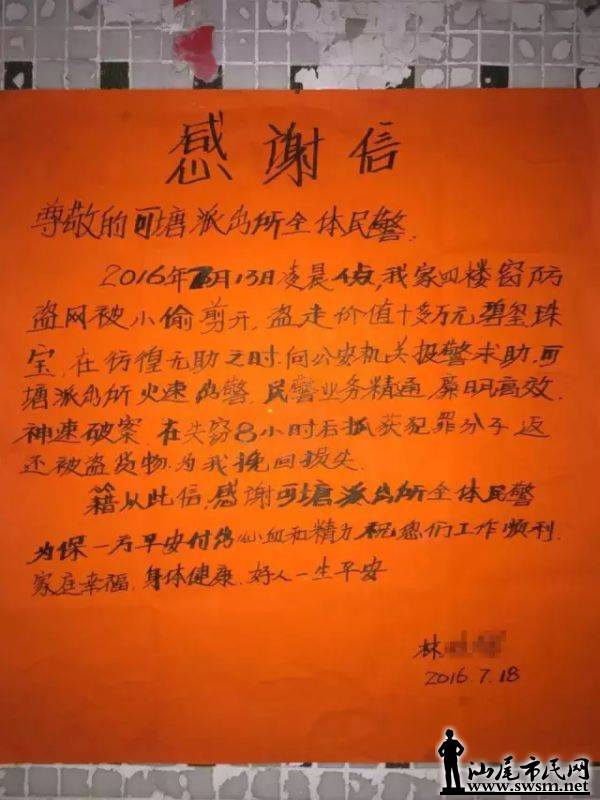 感谢信
尊敬的可塘派出所全体民警.
2016年7月13日凌晨 我家四楼窗防
盗网被小偷剪开, 盗走价值十多万元碧玺珠
宝, 在彷徨无助之时, 向公安机关报警求助, 可
塘派出所火速出警, 民警业务精通, 廉明高效.
神速破案. 在失窃8小时后抓获犯罪分子, 返
还被盗货物, 为我挽回损失.
籍从此信, 感谢可塘派出所全体民警
为保一方平安付出心血和精力, 祝您们工作顺利.
家庭幸福, 身体健康, 好人一生平安
林
2016.7.18
汕尾市民网
www.swsm.net